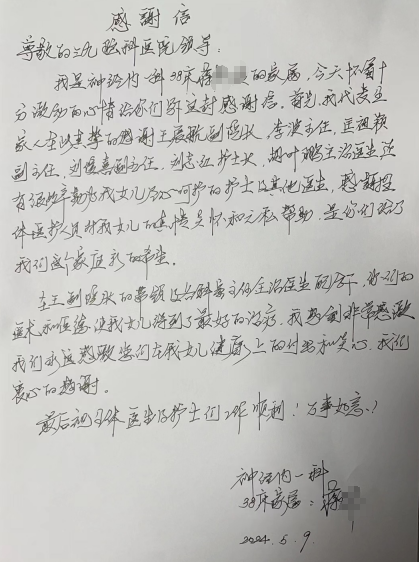 感谢信
尊敬的三九脑科医院领导：
我是神经内一科38床蒋的家属，今天怀着十
分激动的心情给你们写这封感谢信。首先，我代表全
家人在以真挚的感谢王展航副院长，李波主任，
副主任，刘副主任，刘志红护士长，胡叶鹏主治医生还
有很辛勤为我女儿治心呵护的护士及其他医生，感谢
体医护人员对我女儿的真情关怀和无私帮助，是你们给了
我们这个家庭新的希望。
在王副院长的带领及与科室主任主治医生的治疗，你们的
医术和医德使我女儿得到了最好的治疗，我感到非常感激
我们永远感激您们在我女儿健康上的付出和关心，我们
衷心的感谢。
最后祝体医生及护士们工作顺利！万事如意！
神经内一科
38床家属：蒋
2024.5.9.